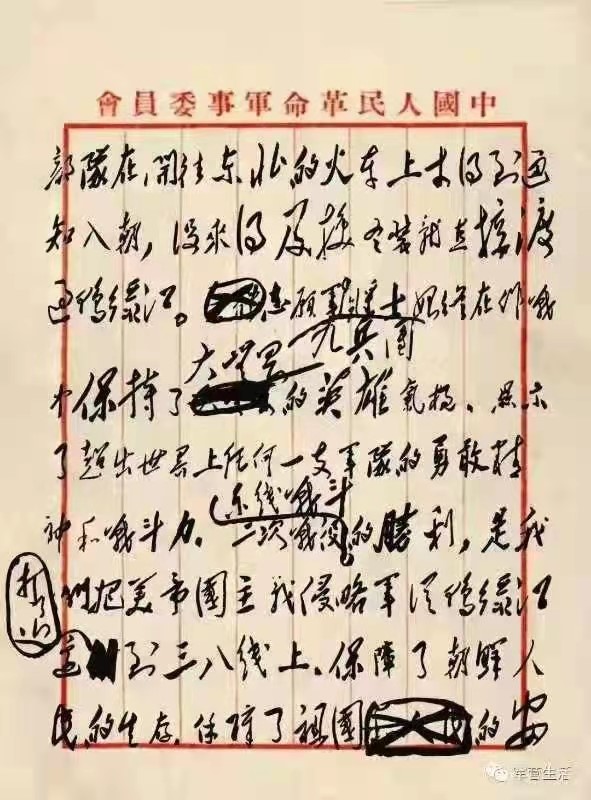 中國人民革命軍事委員會
部隊在開往东北的火车上才得到通
知入朝，没来得及换冬装就直接渡
过鸭绿江。志願軍战士始终在作战
九兵團
大无畏
中保持了的英雄氣概、显示
了超出世界上任何一支軍隊的勇敢精
东线战斗
神和战斗力。二次战役的勝利，是我
们把美帝國主义侵略軍从鸭绿江
打
边到三八线上、保障了朝鲜人
民的生存、保障了祖國的安
军营生活